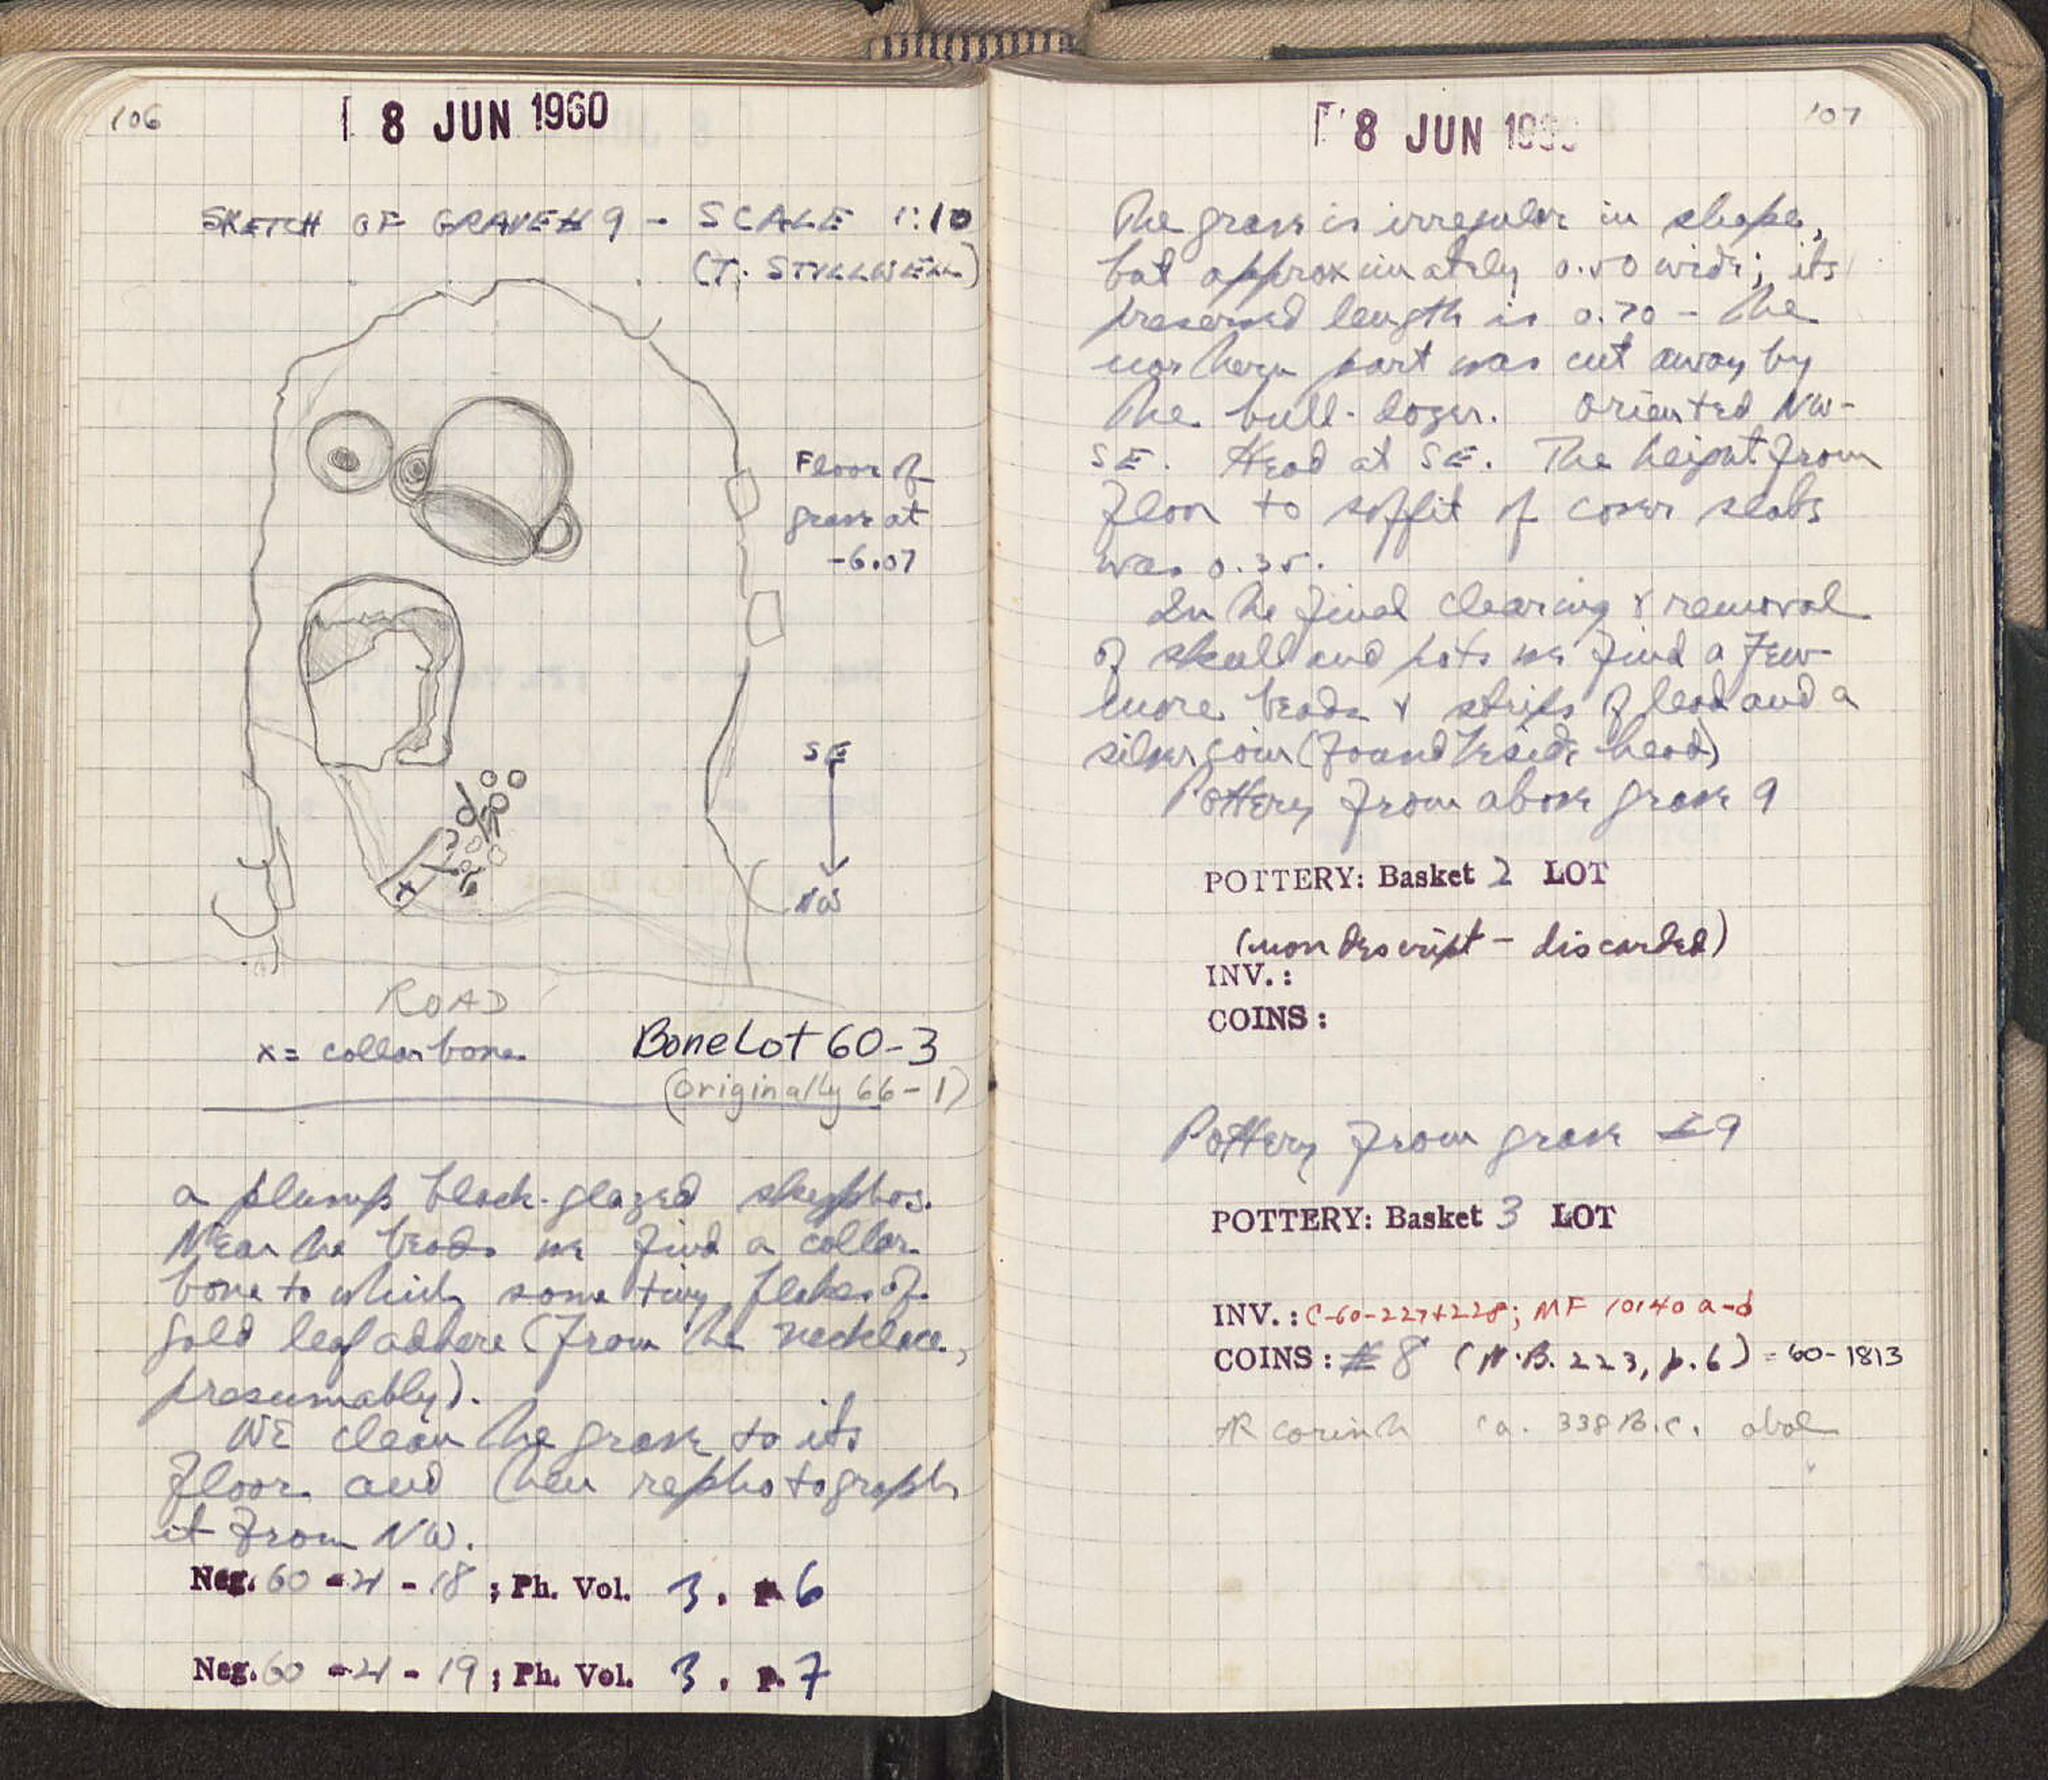 106
8 JUN 1960
SKETCH OF GRAVE 9 - SCALE 1:10
(T. STILLWELL)
Floor of
grave at
-6.07
SE
NW
ROAD
x = collar bone
Bone Lot 60-3
(originally 66-1)
a plump black-glazed skyphos.
Near the beads we find a collar
bone to which some tiny flakes of
gold leaf adhere (from the necklace,
presumably).
We clean the grave to its
floor and then rephotograph
it from NW.
Neg. 60 - 21 - 18 ; Ph. Vol. 3. p 6
Neg. 60 - 21 - 19 ; Ph. Vol. 3. p. 7
107
8 JUN
The grave is irregular in shape,
but approximately 0.50 wide; its
preserved length is 0.70 - the
northern part was cut away by
the bull-dozer. Oriented NW-
SE. Head at SE. The height from
floor to soffit of cover slabs
was 0.35.
In the final clearing & removal
of skull and pots we find a few
more beads & strips of lead and a
silver coin (found beside head)
Pottery from above grave 9
POTTERY: Basket 2 LOT
(nondescript - discarded)
INV.:
COINS:
Pottery from grave 9
POTTERY: Basket 3 LOT
INV.: C-60-227+228; MF 10140 a-d
COINS: # 8 (N.B. 223, p. 6) = 60-1813
AR Corinth ca. 338 B.C. obol